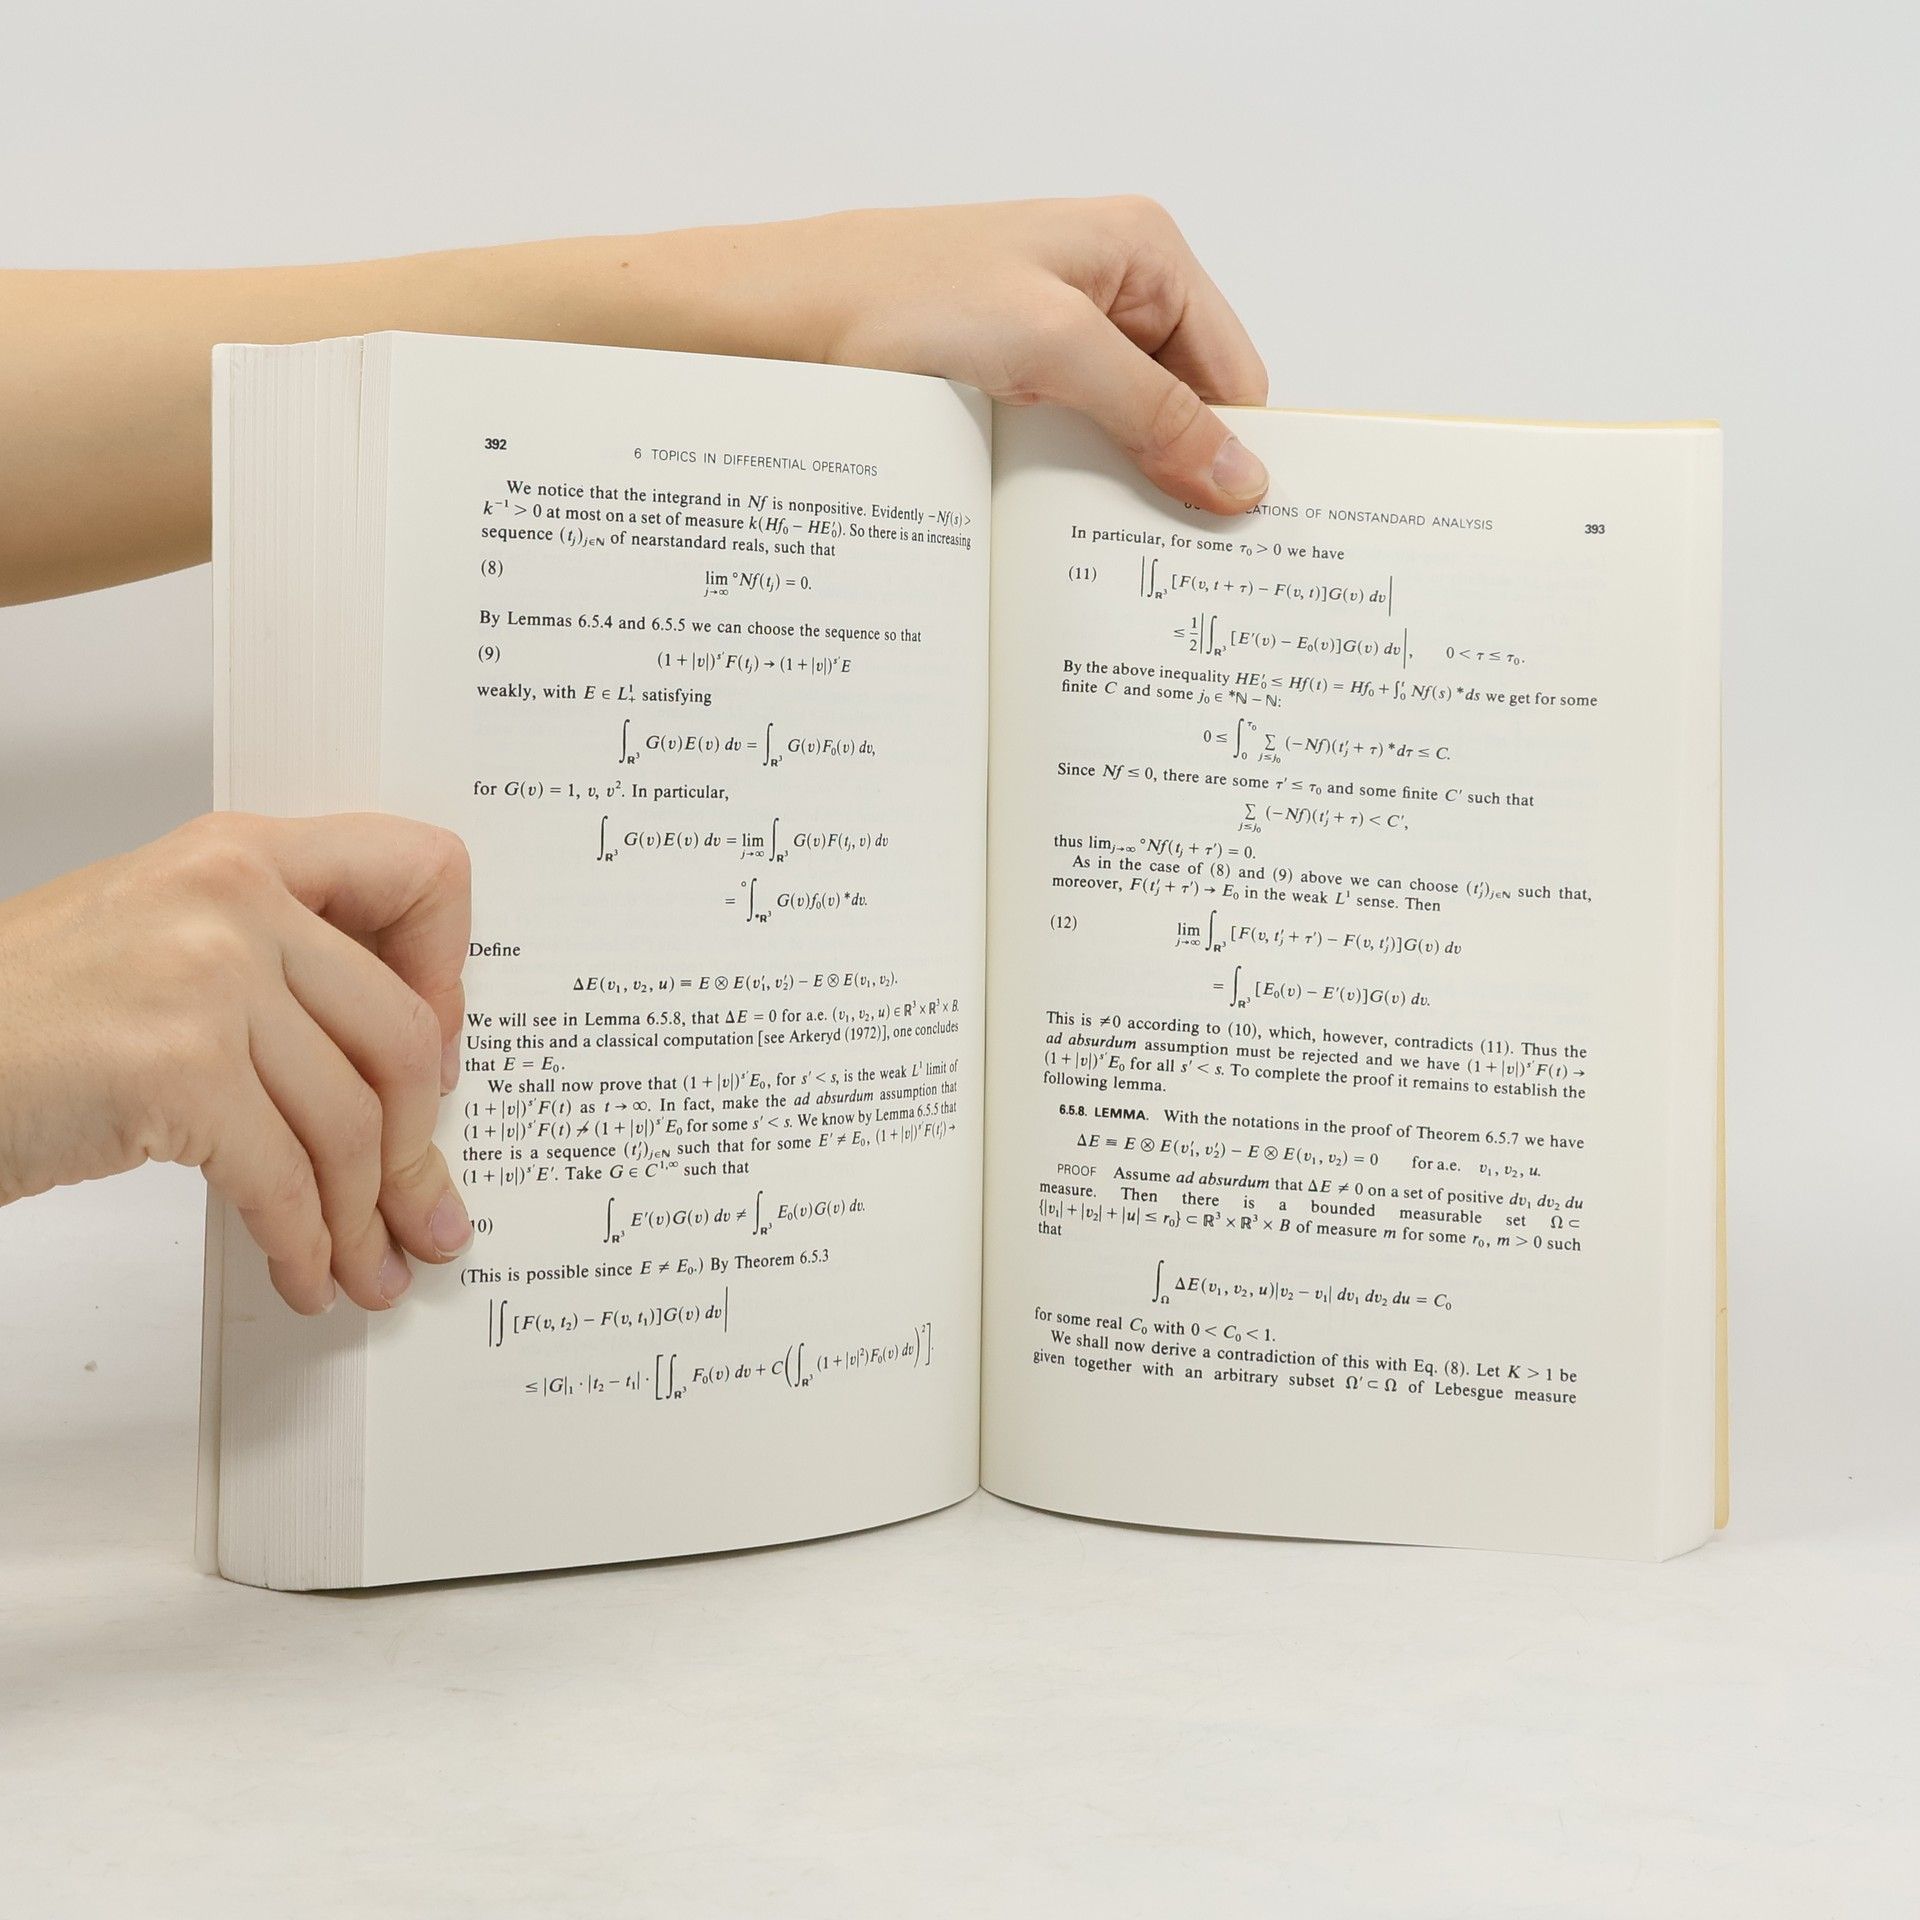 392
6 TOPICS IN DIFFERENTIAL OPERATORS
We notice that the integrand in Nf is nonpositive. Evidently −Nf(s) >
k⁻¹ > 0 at most on a set of measure k(Hf₀ − HE′₀). So there is an increasing
sequence (tⱼ)ⱼ∈ℕ of nearstandard reals, such that
(8) lim j→∞ °Nf(tⱼ) = 0.
By Lemmas 6.5.4 and 6.5.5 we can choose the sequence so that
(9) (1 + |v|)^s′ F(tⱼ) → (1 + |v|)^s′ E
weakly, with E ∈ L¹₊ satisfying
∫_R³ G(v)E(v) dv = ∫_R³ G(v)F₀(v) dv,
for G(v) = 1, v, v². In particular,
∫_R³ G(v)E(v) dv = lim j→∞ ∫_R³ G(v)F(tⱼ, v) dv
= °∫_*R³ G(v)f₀(v) *dv.
Define
ΔE(v₁, v₂, u) ≡ E ⊗ E(v′₁, v′₂) − E ⊗ E(v₁, v₂).
We will see in Lemma 6.5.8, that ΔE = 0 for a.e. (v₁, v₂, u) ∈ ℝ³ × ℝ³ × B.
Using this and a classical computation [see Arkeryd (1972)], one concludes
that E = E₀.
We shall now prove that (1 + |v|)^s′ E₀, for s′ < s, is the weak L¹ limit of
(1 + |v|)^s′ F(t) as t → ∞. In fact, make the ad absurdum assumption that
(1 + |v|)^s′ F(t) ↛ (1 + |v|)^s′ E₀ for some s′ < s. We know by Lemma 6.5.5 that
there is a sequence (t′ⱼ)ⱼ∈ℕ such that for some E′ ≠ E₀, (1 + |v|)^s′ F(t′ⱼ) →
(1 + |v|)^s′ E′. Take G ∈ C^1,∞ such that
10) ∫_R³ E′(v)G(v) dv ≠ ∫_R³ E₀(v)G(v) dv.
(This is possible since E ≠ E₀.) By Theorem 6.5.3
|∫ [F(v, t₂) − F(v, t₁)]G(v) dv|
≤ |G|₁ · |t₂ − t₁| · [∫_R³ F₀(v) dv + C(∫_R³ (1 + |v|²)F₀(v) dv)²].
OF NONSTANDARD ANALYSIS 393
In particular, for some τ₀ > 0 we have
(11) |∫_R³ [F(v, t + τ) − F(v, t)]G(v) dv|
≤ ½|∫_R³ [E′(v) − E₀(v)]G(v) dv|, 0 < τ ≤ τ₀.
By the above inequality HE′₀ ≤ Hf(t) = Hf₀ + ∫₀ᵗ Nf(s) *ds we get for some
finite C and some j₀ ∈ *ℕ − ℕ:
0 ≤ ∫₀^τ₀ Σ j≤j₀ (−Nf)(t′ⱼ + τ) *dτ ≤ C.
Since Nf ≤ 0, there are some τ′ ≤ τ₀ and some finite C′ such that
Σ j≤j₀ (−Nf)(t′ⱼ + τ) < C′,
thus limⱼ→∞ °Nf(tⱼ + τ′) = 0.
As in the case of (8) and (9) above we can choose (t′ⱼ)ⱼ∈ℕ such that,
moreover, F(t′ⱼ + τ′) → E₀ in the weak L¹ sense. Then
(12) lim j→∞ ∫_R³ [F(v, t′ⱼ + τ′) − F(v, t′ⱼ)]G(v) dv
= ∫_R³ [E₀(v) − E′(v)]G(v) dv.
This is ≠0 according to (10), which, however, contradicts (11). Thus the
ad absurdum assumption must be rejected and we have (1 + |v|)^s′ F(t) →
(1 + |v|)^s′ E₀ for all s′ < s. To complete the proof it remains to establish the
following lemma.
6.5.8. LEMMA. With the notations in the proof of Theorem 6.5.7 we have
ΔE ≡ E ⊗ E(v′₁, v′₂) − E ⊗ E(v₁, v₂) = 0 for a.e. v₁, v₂, u.
PROOF Assume ad absurdum that ΔE ≠ 0 on a set of positive dv₁ dv₂ du
measure. Then there is a bounded measurable set Ω ⊂
{|v₁| + |v₂| + |u| ≤ r₀} ⊂ ℝ³ × ℝ³ × B of measure m for some r₀, m > 0 such
that
∫_Ω ΔE(v₁, v₂, u)|v₂ − v₁| dv₁ dv₂ du = C₀
for some real C₀ with 0 < C₀ < 1.
We shall now derive a contradiction of this with Eq. (8). Let K > 1 be
given together with an arbitrary subset Ω′ ⊂ Ω of Lebesgue measure